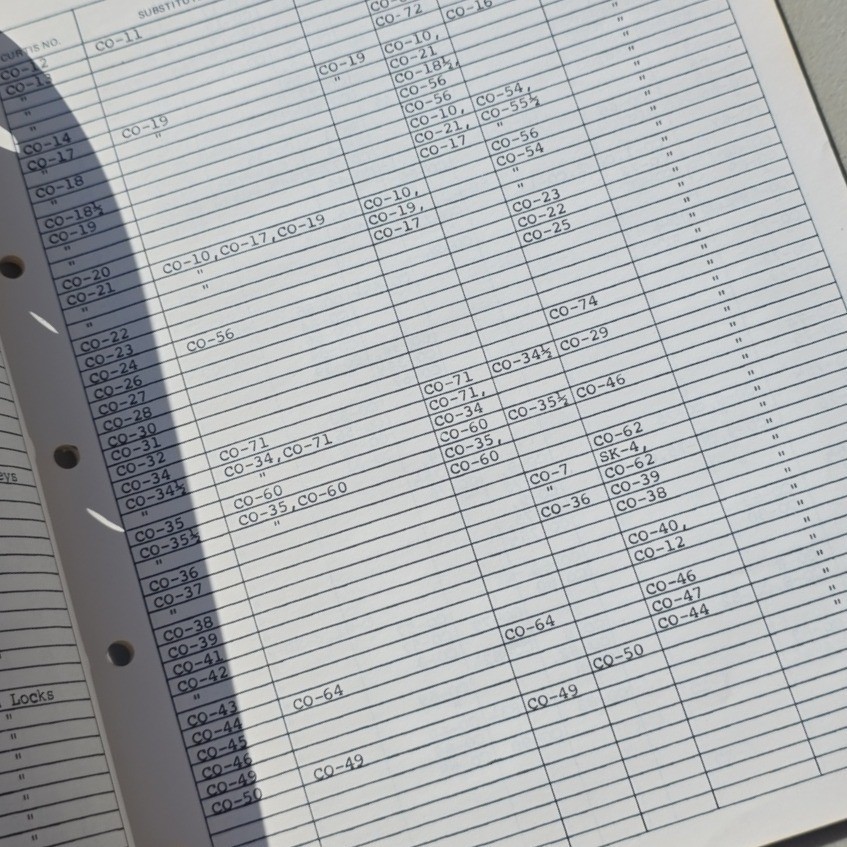 CURTIS NO.
CO-72 CO-16
CO-12 CO-11
CO-13
"
"
CO-14
CO-17 CO-19 CO-19 CO-10, "
" " " CO-21 "
CO-18 CO-18½, "
" CO-56 "
CO-18½ CO-56 "
CO-19 CO-10, CO-54, "
" CO-21, CO-55½ "
" CO-17 " "
CO-20 CO-56 "
CO-21 CO-10,CO-17,CO-19 CO-10, CO-54 "
" " CO-19, " "
" " CO-17 " "
CO-22 CO-23 "
CO-23 CO-22 "
CO-24 CO-56 CO-25 "
CO-26 "
CO-27 "
CO-28 "
CO-30 "
CO-31 CO-74 "
CO-32 "
CO-34 CO-71 CO-71 CO-34½ CO-29 "
CO-34½ CO-34,CO-71 CO-71, "
" " CO-34 "
CO-35 CO-60 CO-60 CO-35½ CO-46 "
CO-35½ CO-35,CO-60 CO-35, "
" " CO-60 "
CO-36 CO-62 "
CO-37 CO-7 SK-4, "
" " CO-62 "
CO-38 CO-36 CO-39 "
CO-39 CO-38 "
CO-41 "
CO-42 CO-40, "
" CO-12 "
CO-43 "
CO-44 CO-64 CO-64 CO-46 "
CO-45 CO-47 "
CO-46 CO-44 "
CO-49 CO-50
CO-50 CO-49 CO-49
Locks
"
"
"
"
"
"